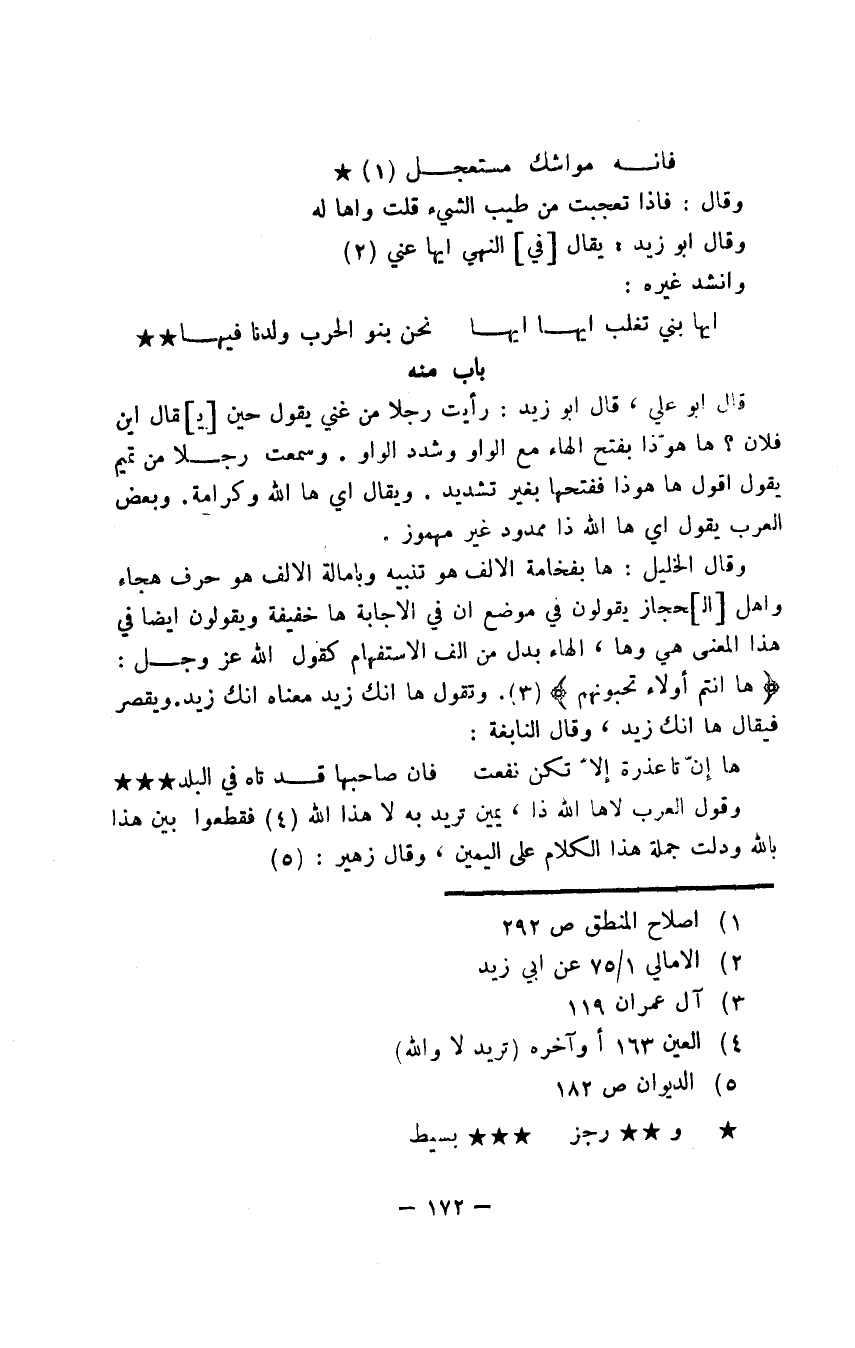 فانه مواشك مستعجل (١) ★
وقال : فاذا تعجبت من طيب الشيء قلت واها له
وقال ابو زيد : يقال [في] النهي ايها عني (٢)
وانشد غيره :
ايها بني تغلب ايها ايها    نحن بنو الحرب ولدنا فيها★★
باب منه
قال ابو علي ، قال ابو زيد : رأيت رجلا من غني يقول حين [يـ]قال اين
فلان ؟ ها هوّذا بفتح الهاء مع الواو وشدد الواو . وسمعت رجلا من تميم
يقول اقول ها هوذا ففتحها بغير تشديد . ويقال اي ها الله وكرامة. وبعض
العرب يقول اي ها الله ذا ممدود غير مهموز .
وقال الخليل : ها بفخامة الالف هو تنبيه وبامالة الالف هو حرف هجاء
واهل [الـ]حجاز يقولون في موضع ان في الاجابة ها خفيفة ويقولون ايضا في
هذا المعنى هي وها ، الهاء بدل من الف الاستفهام كقول الله عز وجل :
﴿ ها انتم أولاء تحبونهم ﴾ (٣). وتقول ها انك زيد معناه انك زيد.ويقصر
فيقال ها انك زيد ، وقال النابغة :
ها إنّ تا عذرة إلاّ تكن نفعت    فان صاحبها قد تاه في البلد★★★
وقول العرب لاها الله ذا ، يمين تريد به لا هذا الله (٤) فقطعوا بين هذا
بالله ودلت جملة هذا الكلام على اليمين ، وقال زهير : (٥)
١) اصلاح المنطق ص ٢٩٢
٢) الامالي ٧٥/١ عن ابي زيد
٣) آل عمران ١١٩
٤) العين ١٦٣ أ وآخره (تريد لا والله)
٥) الديوان ص ١٨٢
★ و ★★ رجز ★★★ بسيط
— ١٧٢ —